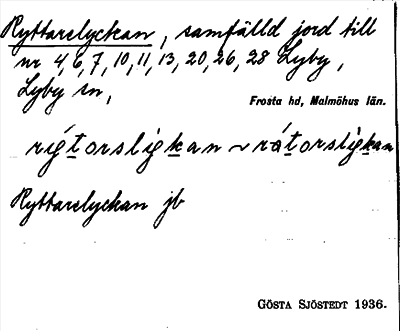 Ryttarelyckan, samfälld jord till
nr 4, 6, 7, 10, 11, 13, 20, 26, 28 Lyby,
Lyby sn,
Frosta hd, Malmöhus län.
rígtorsligkan ~ rátorsligkan
Ryttarelyckan jb
GÖSTA SJÖSTEDT 1936.